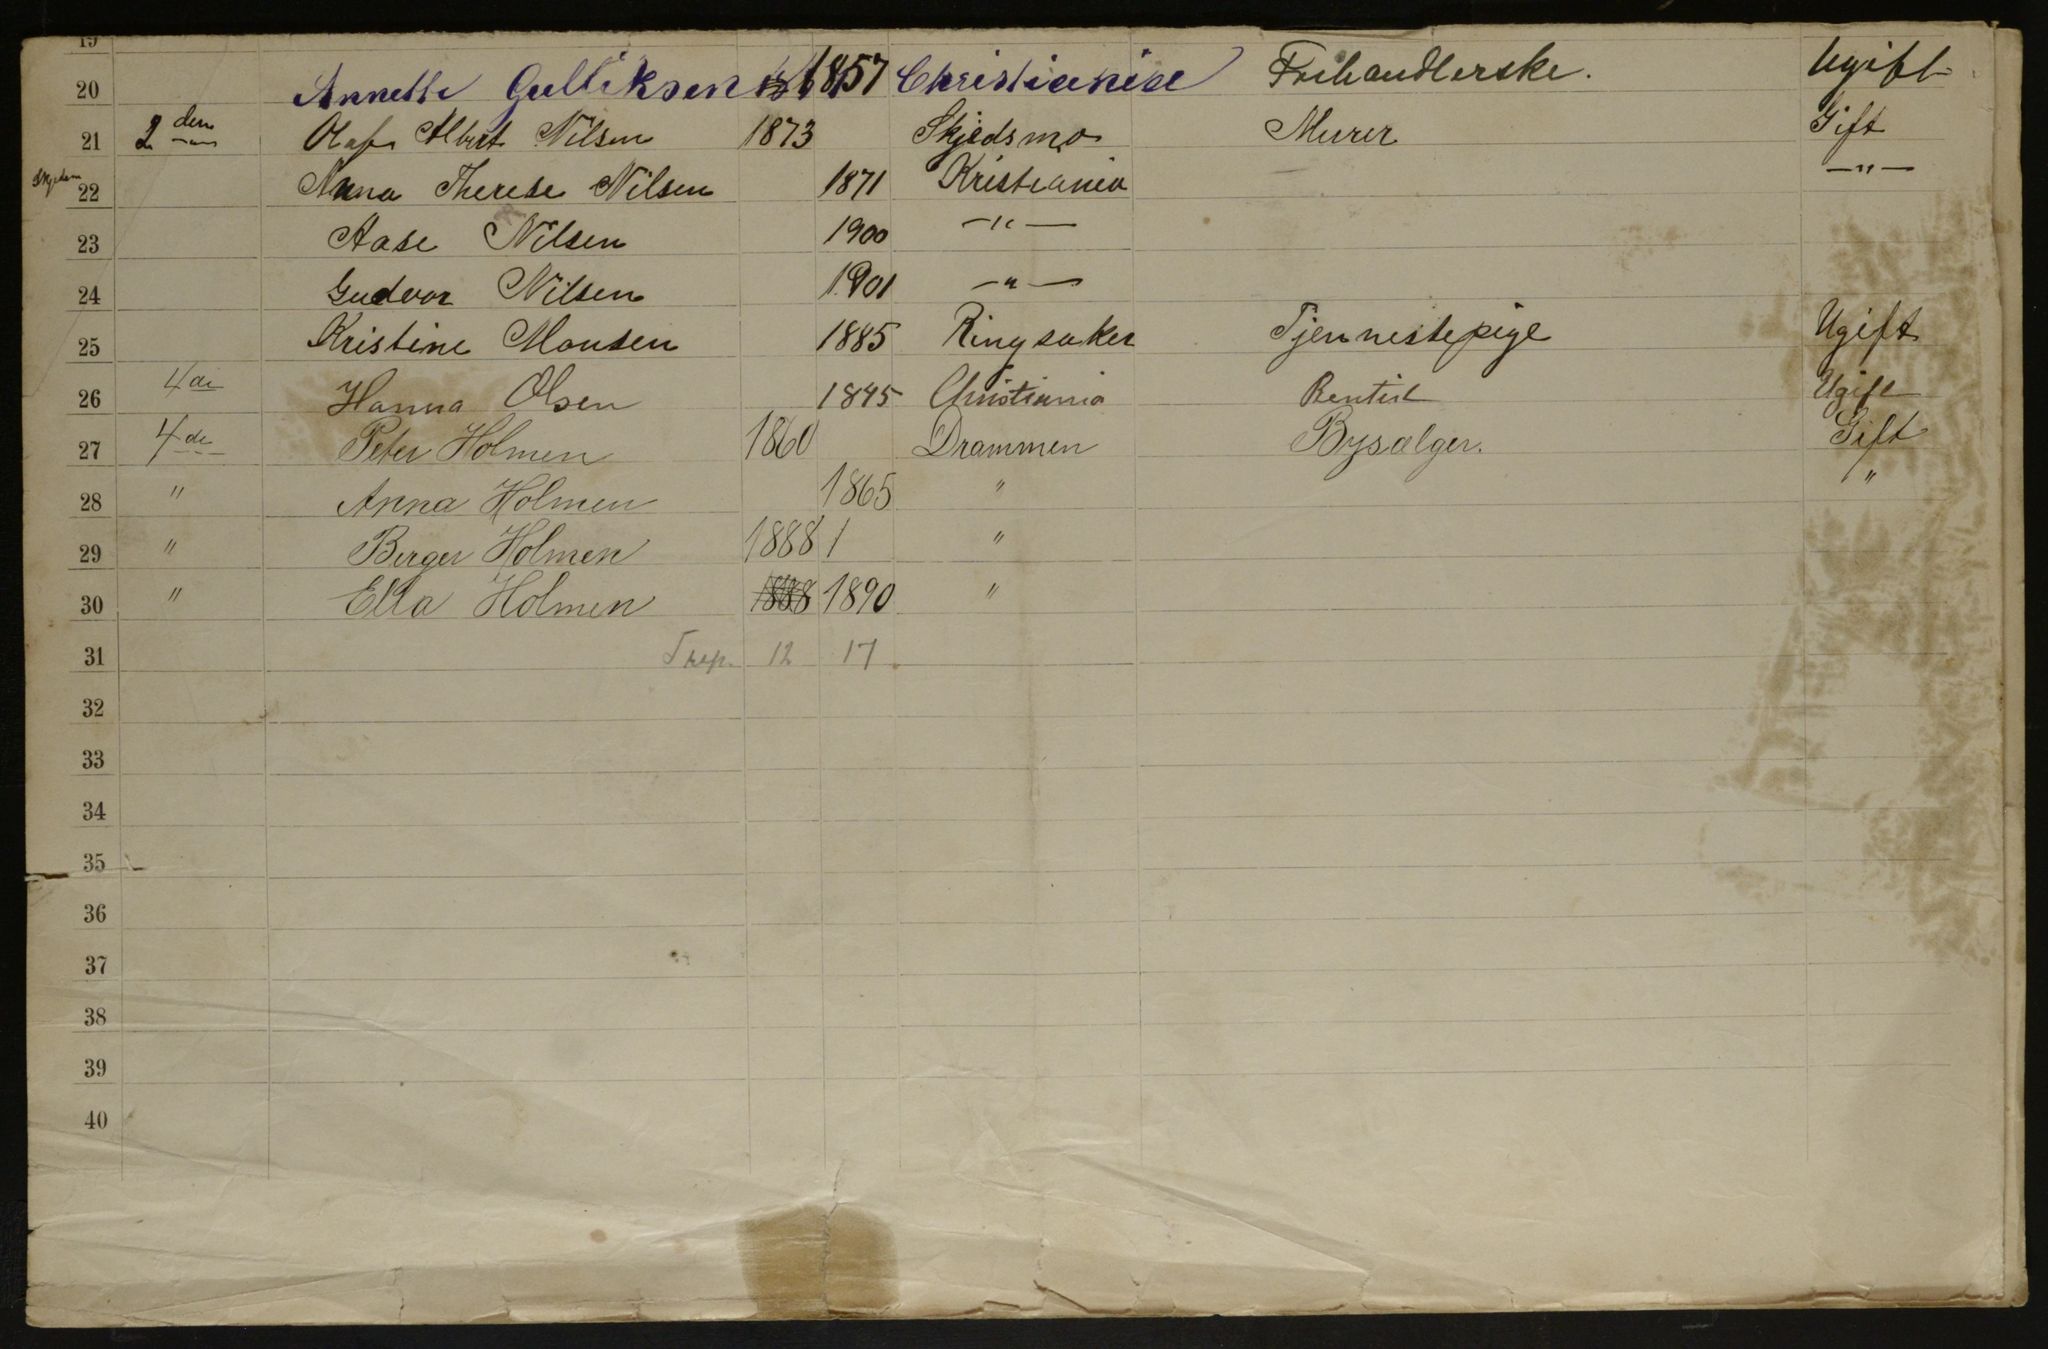 19
20 Annette Gulliksen 1857 Christianise Frihandlerske. Ugift
21 2 den Olaf Albert Nilsen 1873 Skjedsmo Murer Gift
22 Anna Therese Nilsen 1871 Kristiania —"—
23 Aase Nilsen 1900 —"—
24 Gudvor Nilsen 1901 —"—
25 Kristine Monsen 1885 Ringsaker Tjennestepige Ugift
26 4de Hanna Olsen 1845 Christiania Rentist Ugift
27 4de Peter Holmen 1860 Drammen Bysælger. Gift
28 " Anna Holmen 1865 " "
29 " Birger Holmen 1888 1 "
30 " Ella Holmen 1888 1890 "
31 12 17
32
33
34
35
36
37
38
39
40